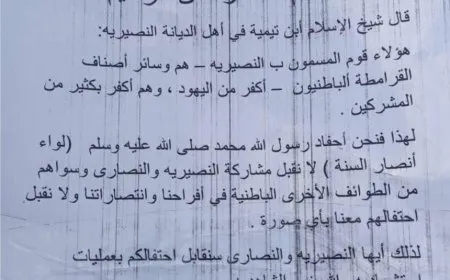 قال شيخ الإسلام أبن تيمية في أهل الديانة النصيريه:
هؤلاء قوم المسمون ب النصيريه – هم وسائر أصناف
القرامطة ألباطنيون – أكفر من اليهود ، وهم أكفر بكثير من
المشركين .
لهذا فنحن أحفاد رسول الله محمد صلى الله عليه وسلم (لواء
أنصار السنة ) لا نقبل مشاركة النصيريه والنصارى وسواهم
من الطوائف الأخرى الباطنية في أفراحنا وانتصاراتنا ولا نقبل
احتفالهم معنا بأي صورة .
لذلك أيها النصيريه والنصارى سنقابل احتفالكم بعمليات